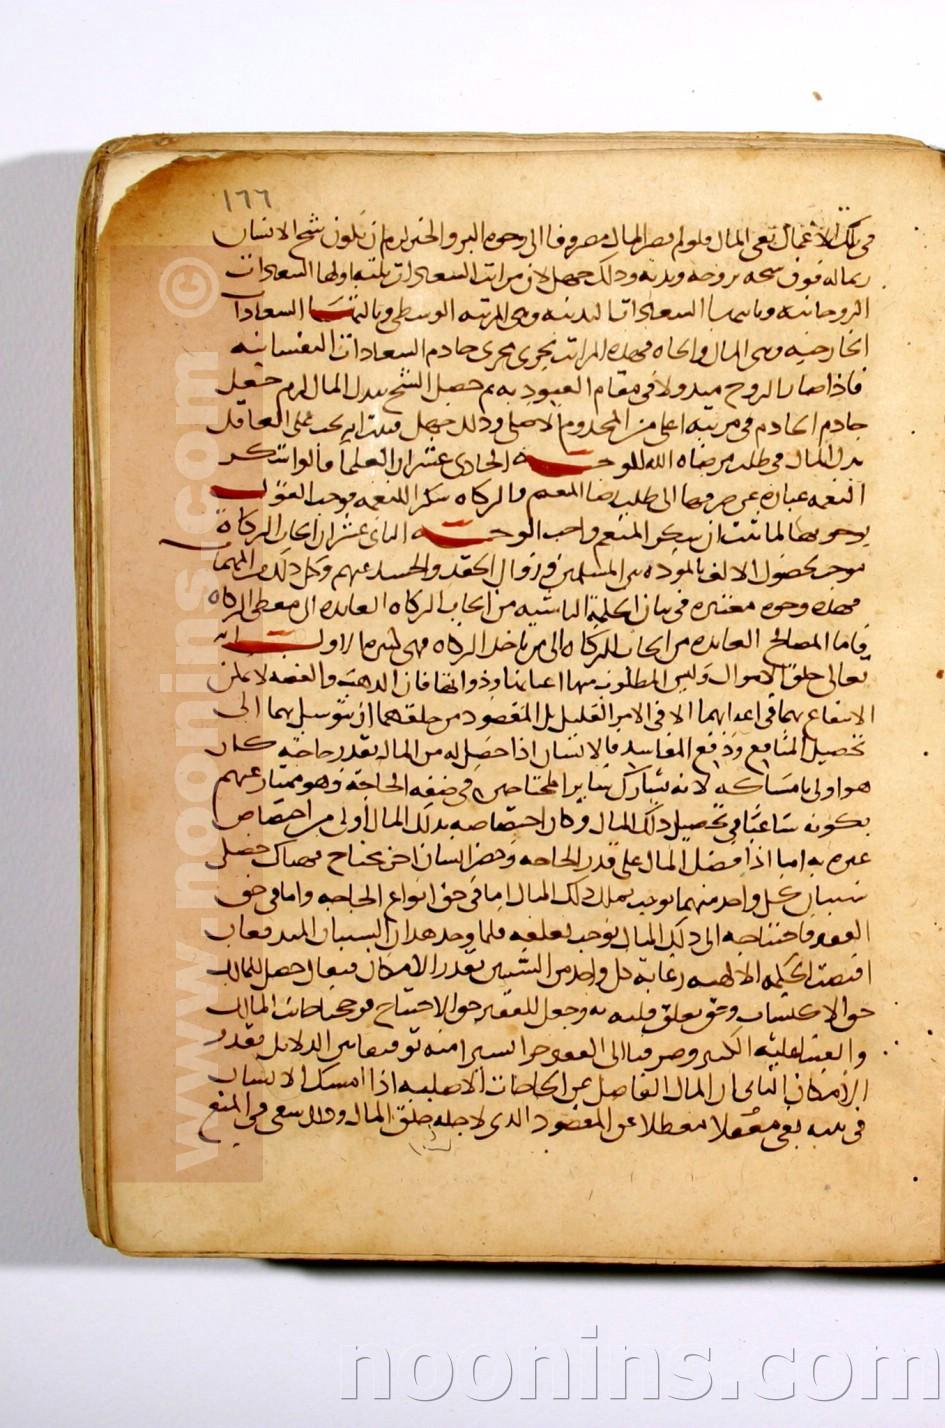 ١٦٦
في تلك الاعمال نفى المال فلو لم يصر المال مصروفا الى وجوه البر والخير لزم ان يكون شح الانسان
بماله فوق شحه بروحه وبدنه وذلك جهل لان مراتب السعادات ثلثه اولها السعادات
الروحانيه وثانيها السعادات البدنيه وهي المرتبه الوسطى وثالثها السعادات
الخارجيه وهي المال والجاه فهذه المراتب تجري مجرى خادم السعادات النفسانيه
فاذا صار الروح مبذولا في مقام العبوديه ثم حصل الشح ببذل المال لزم جعل
خادم الخادم في مرتبه اعلى من المخدوم الاصلي وذلك جهل فثبت انه يجب على العاقل
بذل المال في طلب مرضاة الله الوجه الحادي عشر ان العلما قالوا شكر
النعمه عباره عن صرفها الى طلب رضا المنعم والزكاه شكر النعمه فوجب القول
بوجوبها لما ثبت ان شكر المنعم واجب الوجه الثاني عشر ان ايجاب الزكاة
يوجب حصول الالف بالموده بين المسلمين في زوال الحقد والحسد عنهم وكل ذلك من المهمات
فهذه وجوه معتبره في بيان الحكمة الناشيه من ايجاب الزكاه العايده الى معطي الزكاه
فاما المصالح العايده من ايجاب الزكاه الى من ياخذ الزكاه فهي كثيره الاول ان الله
تعالى خلق الاموال وليس المطلوب منها اعيانها وذواتها فان الذهب والفضه لا يمكن
الانتفاع بهما في اعيانهما الا في الامر القليل بل المقصود من خلقهما ان يتوسل بهما الى
تحصيل المنافع ودفع المفاسد فالانسان اذا حصل له من المال بقدر حاجته كان
هو اولى بامساكه لانه يشارك ساير المحتاجين في صفه الحاجة وهو ممتاز عنهم
بكونه ساعيا في تحصيل ذلك المال وكان اختصاصه بذلك المال اولى من اختصاص
غيره به اما اذا فضل المال على قدر الحاجه وحضر انسان اخر محتاج فهناك حصل
سببان كل واحد منهما يوجب تملك ذلك المال اما في حق انواع الحاجه واما في حق
الفقير فاحتياجه الى ذلك المال يوجب تعلقه فلما وجد هذان السببان المتدافعان
اقتضت الحكمه الالهيه رعاية كل واحد من السببين بقدر الامكان فيقال حصل للمالك
حق الاكتساب وحق تعلق قلبه به وجعل للفقير حق الاحتياج فرجحنا جانب المالك
وابقينا عليه الكثير وصرفنا الى الفقير جزءا يسيرا منه توفيقا بين الدلائل بقدر
الامكان الثاني ان المال الفاضل عن الحاجات الاصليه اذا امسك الانسان
في بيته بقي معطلا عن المقصود الذي لاجله خلق المال وذلك سعى في المنع
www.noonins.com ©
noonins.com